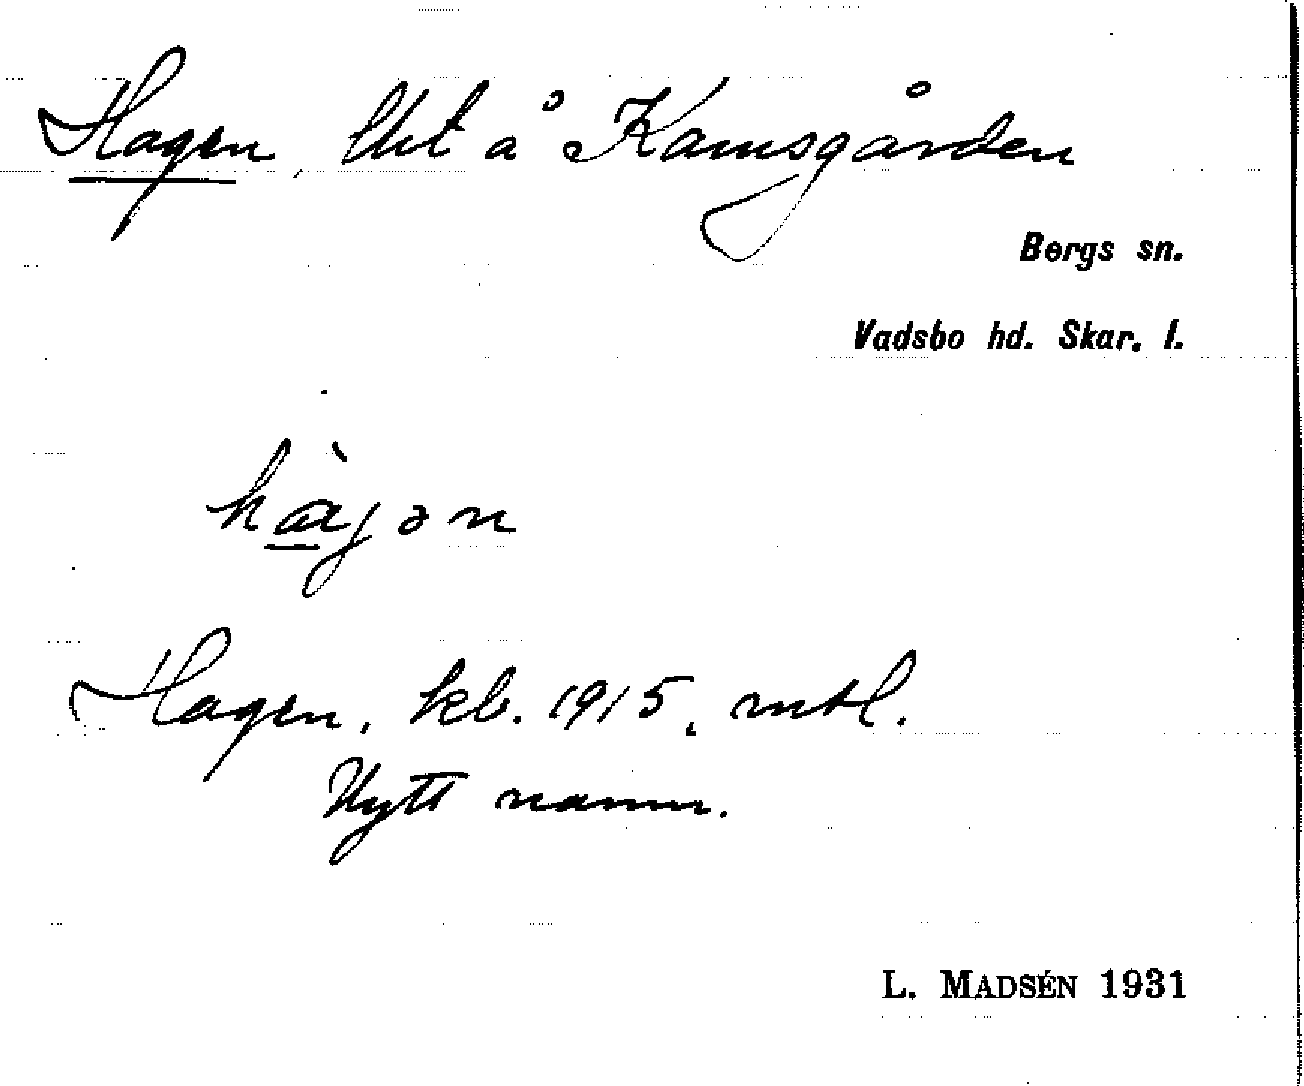 Hagen, lht å Kamsgården
Bergs sn.
Vadsbo hd. Skar. l.
hàgən
Hagen, kb. 1915, mtl.
Nytt namn.
L. MADSÉN 1931